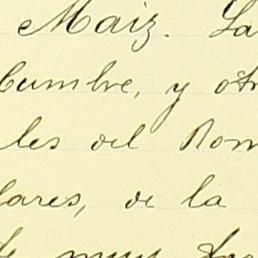 Maiz. La
cumbre, y otr
les del Rom
lares, de la